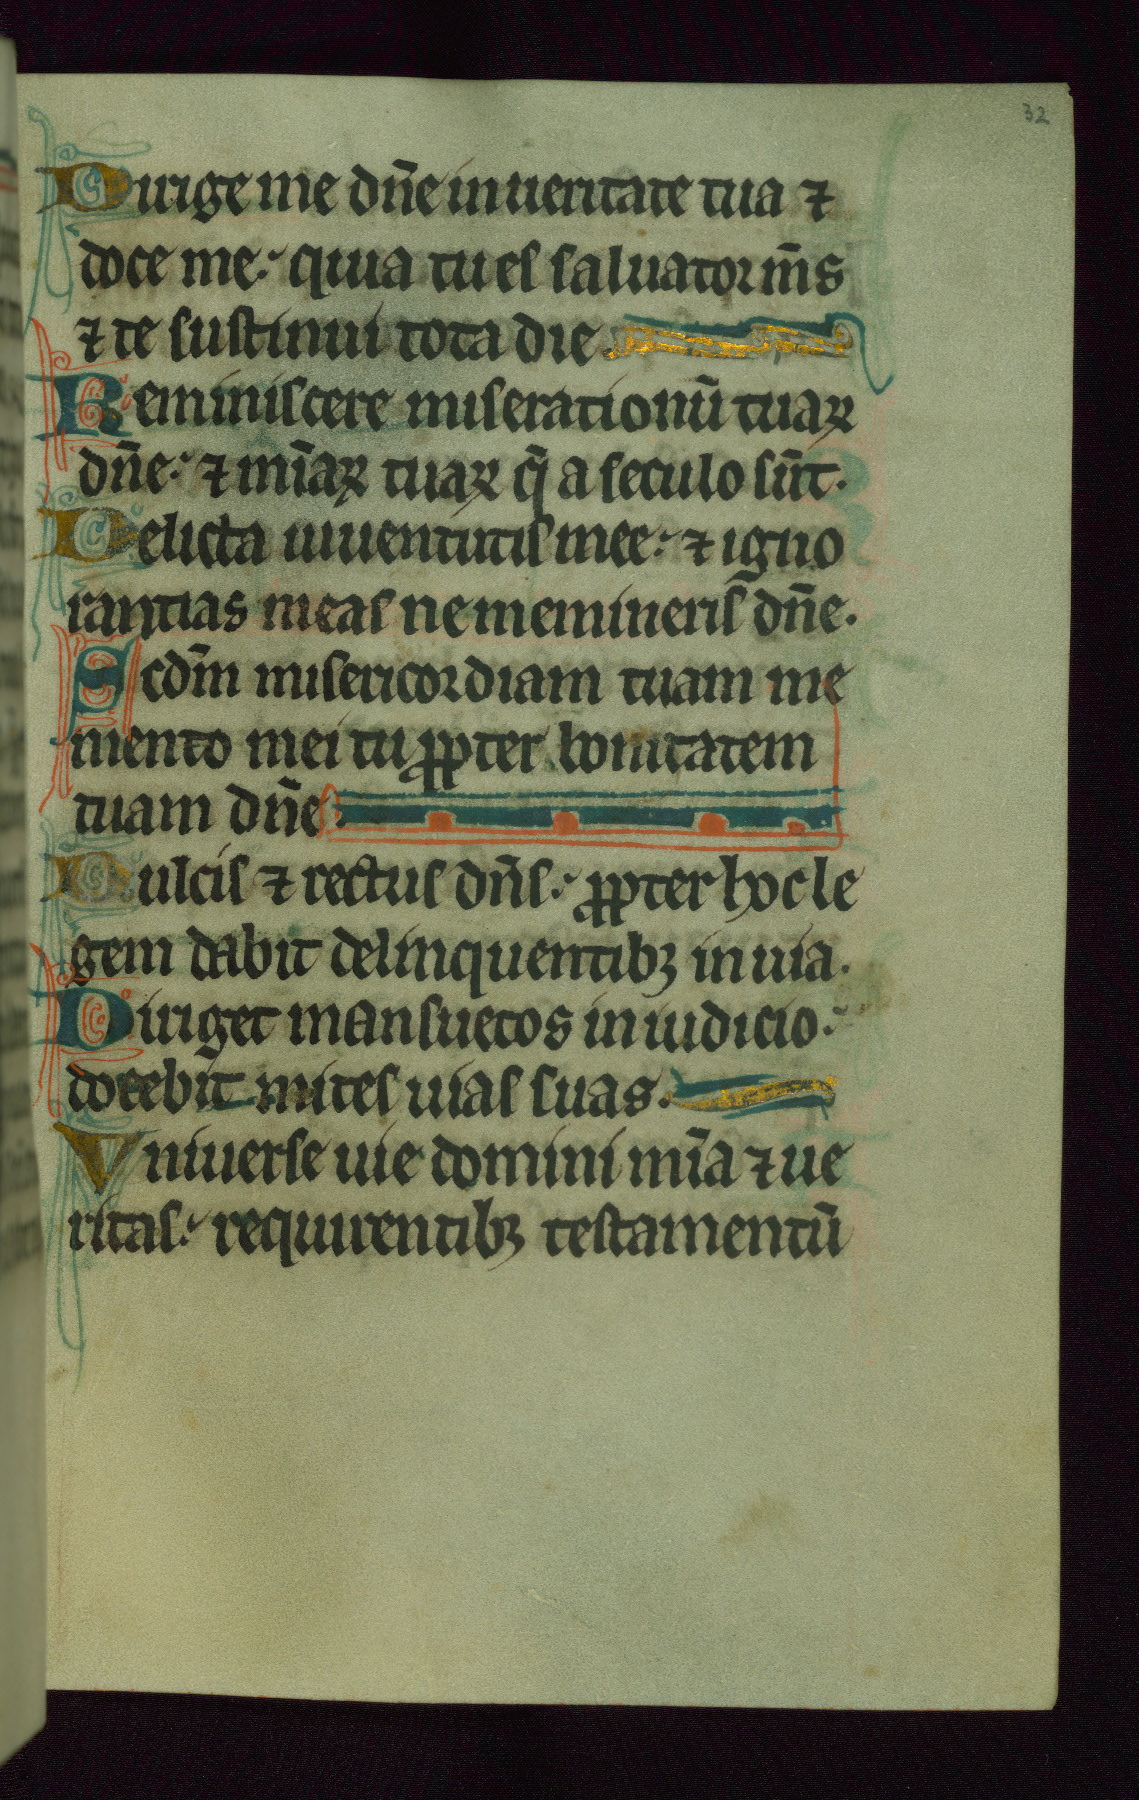 32
Dirige me dn̄e in ueritate tua ⁊
doce me: quia tu es saluator m̄s
⁊ te sustinui tota die.
Reminiscere miserationū tuaꝝ
dn̄e: ⁊ mīaꝝ tuaꝝ q̄ a seculo sūt.
Delicta iuuentutis mee: ⁊ igno
rantias meas ne memineris dn̄e.
Scdm̄ misericordiam tuam me
mento mei tu ꝓpter bonitatem
tuam dn̄e.
Dulcis ⁊ rectus dn̄s: ꝓpter hoc le
gem dabit delinquentibꝫ in uia.
Diriget mansuetos in iudicio:
docebit mites uias suas.
Vniuerse uie domini mīa ⁊ ue
ritas: requirentibꝫ testamentū